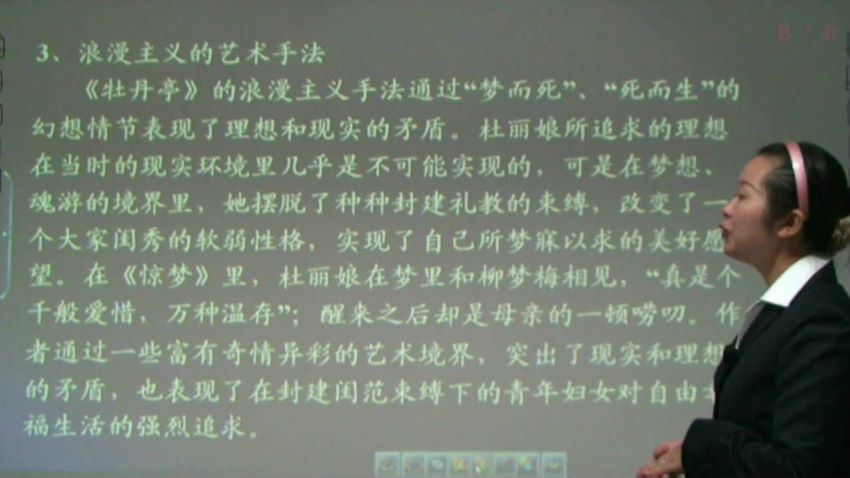 3、浪漫主义的艺术手法
《牡丹亭》的浪漫主义手法通过“梦而死”、“死而生”的
幻想情节表现了理想和现实的矛盾。杜丽娘所追求的理想
在当时的现实环境里几乎是不可能实现的，可是在梦想、
魂游的境界里，她摆脱了种种封建礼教的束缚，改变了一
个大家闺秀的软弱性格，实现了自己所梦寐以求的美好愿
望。在《惊梦》里，杜丽娘在梦里和柳梦梅相见，“真是个
千般爱惜，万种温存”；醒来之后却是母亲的一顿唠叨。作
者通过一些富有奇情异彩的艺术境界，突出了现实和理想
的矛盾，也表现了在封建闺范束缚下的青年妇女对自由
福生活的强烈追求。